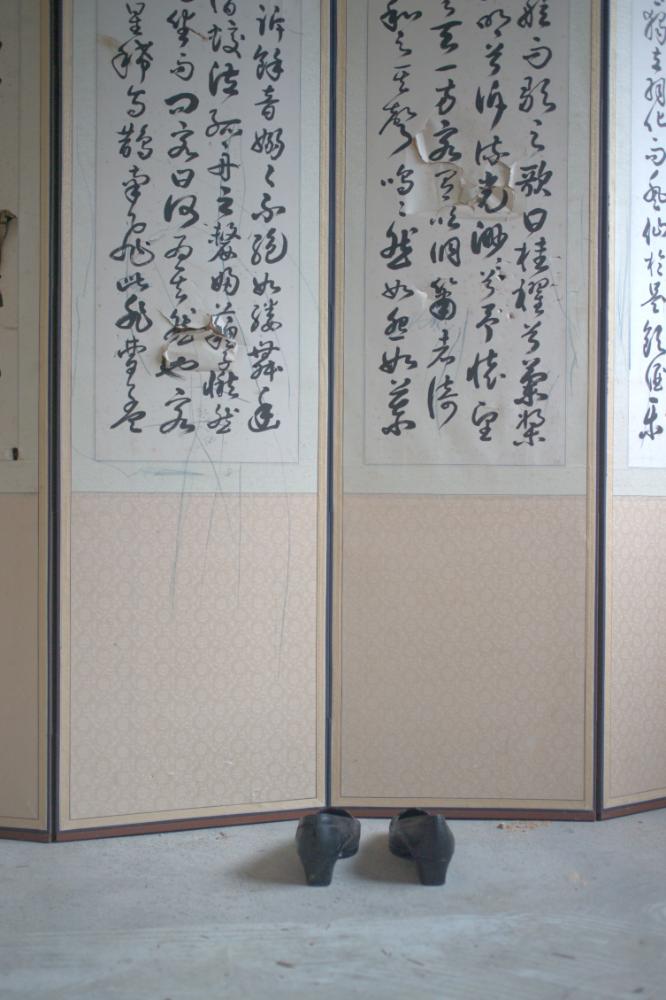 獨立羽化而登仙於是飲酒樂
舷而歌之歌曰桂櫂兮蘭槳
明兮泝流光渺渺兮予懷望
兮天一方客有吹洞簫者倚
和之其聲嗚嗚然如怨如慕
訴餘音嫋嫋不絕如縷舞幽
潛蛟泣孤舟之嫠婦蘇子愀然
坐而問客曰何為其然也客
星稀烏鵲南飛此非曹孟